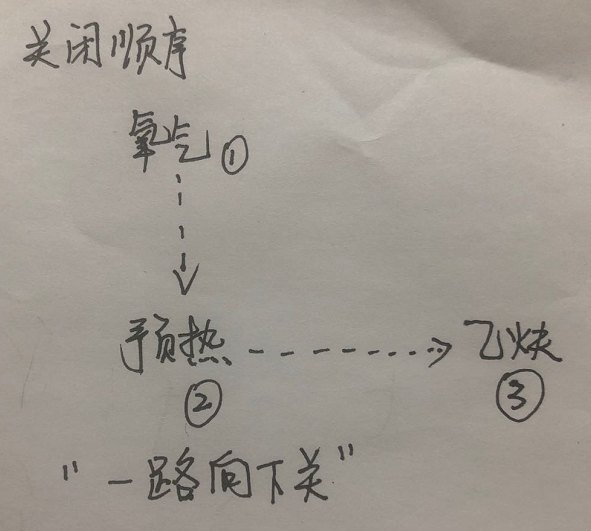 关闭顺序
氧气①
预热 乙炔
② ③
"一路向下关"